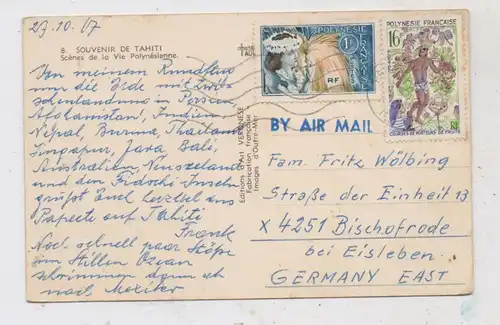 27.10.67
8. SOUVENIR DE TAHITI
Scènes de la Vie Polynésienne.
Von meinem Rundflug
um die Erde mit Zwi-
schenlandung in Persien,
Afghanistan, Indien,
Nepal, Burma, Thailand,
Singapur, Java, Bali,
Australien, Neuseeland
und den Fidschi Inseln
grüßt Euch herzlich aus
Papeete auf Tahiti
Frank
Noch schnell paar Stöße
im Stillen Ozean
schwimmen dann ab
nach Mexiko
Editions D'Art VERONESE
Fabrication Française
Images d'Outre-Mer
POLYNESIE
FRANÇAISE
1F
RF
POLYNESIE FRANÇAISE
16F
COURSES DE PORTEURS DE FRUITS
BY AIR MAIL
Fam. Fritz Wölbing
Straße der Einheit 13
X 4251 Bischofrode
bei Eisleben
GERMANY EAST